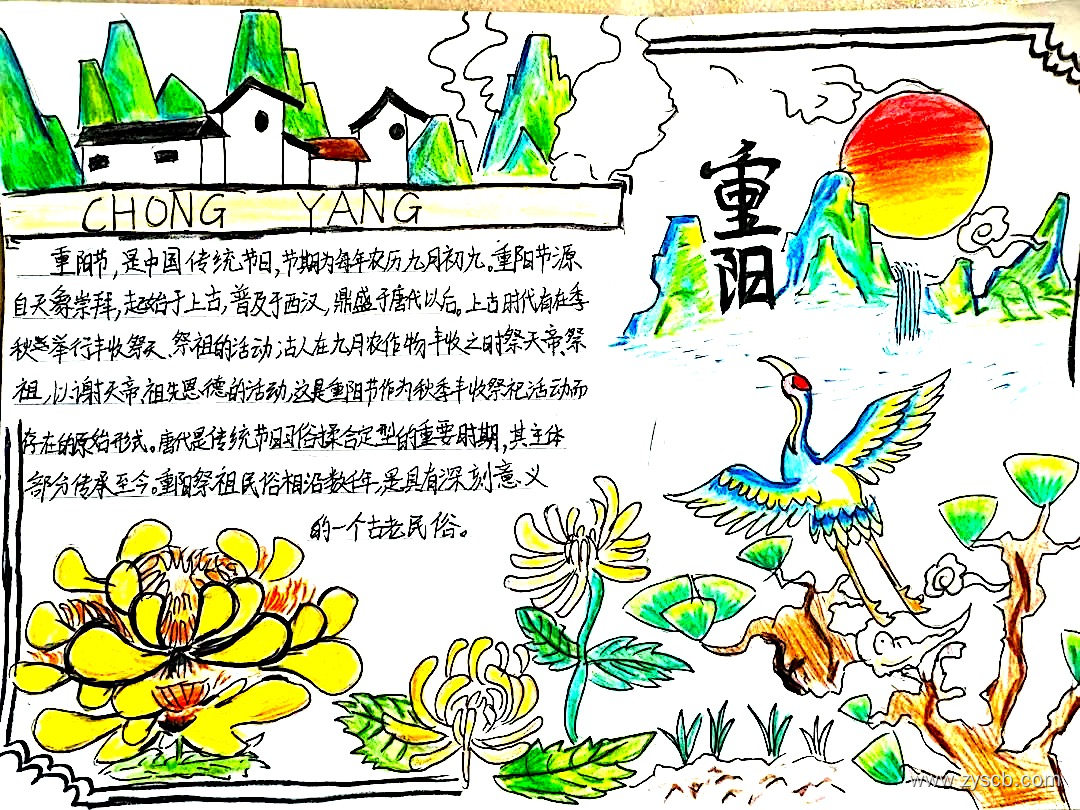 CHONG YANG
重阳
重阳节,是中国传统节日,节期为每年农历九月初九。重阳节源
自天象崇拜,起始于上古,普及于西汉,鼎盛于唐代以后。上古时代有在季
秋举行丰收祭天、祭祖的活动;古人在九月农作物丰收之时祭天帝、祭
祖,以谢天帝、祖先恩德的活动,这是重阳节作为秋季丰收祭祀活动而
存在的原始形式。唐代是传统节日习俗揉合定型的重要时期,其主体
部分传承至今。重阳祭祖民俗相沿数千年,是具有深刻意义
的一个古老民俗。
www.zyscb.com